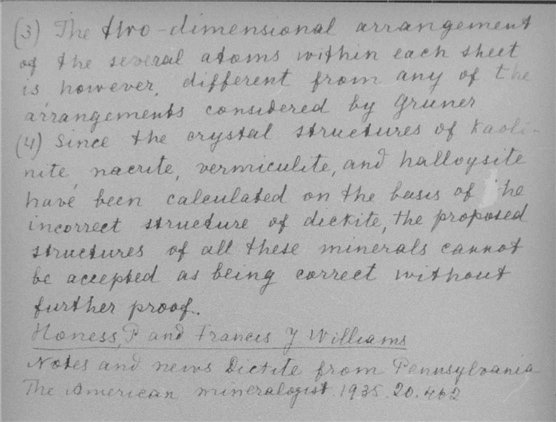 (3) The two-dimensional arrangement
of the several atoms within each sheet
is however, different from any of the
arrangements considered by Gruner
(4) Since the crystal structures of kaoli-
nite, nacrite, vermiculite, and halloysite
have been calculated on the basis of the
incorrect structure of dickite, the proposed
structures of all these minerals cannot
be accepted as being correct without
further proof.
Honess, P and Francis J Williams
Notes and news Dickite from Pennsylvania
The American mineralogist 1935. 20. 462